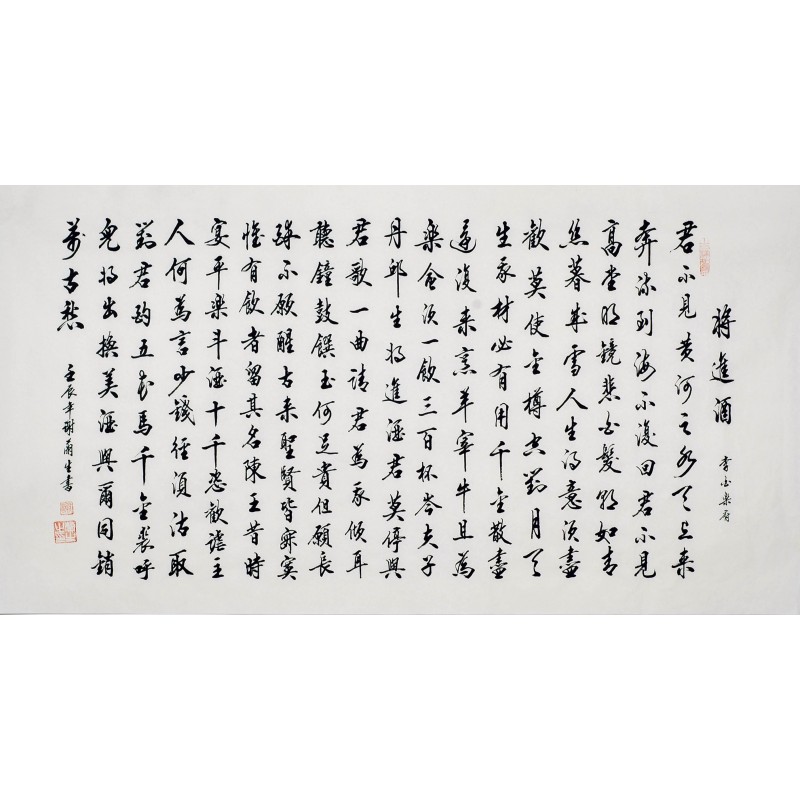 將進酒
李白樂府
君不見黄河之水天上来
奔流到海不復回君不見
高堂明鏡悲白髮朝如青
丝暮成雪人生得意須盡
歡莫使金樽空對月天
生我材必有用千金散盡
還復来烹羊宰牛且為
樂會須一飲三百杯岑夫子
丹邱生将進酒君莫停與
君歌一曲請君為我傾耳
聽鐘鼓饌玉何足貴但願長
醉不願醒古来聖賢皆寂寞
惟有飲者留其名陳王昔時
宴平樂斗酒十千恣歡謔主
人何為言少錢徑須沽取
對君酌五花馬千金裘呼
兒将出換美酒與爾同銷
萬古愁
壬辰年謝蘭生書